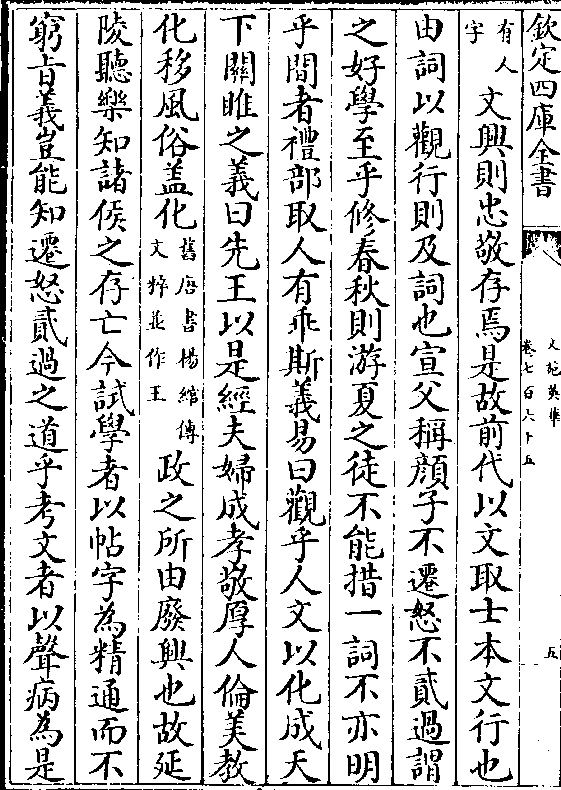 欽定四庫全書
文苑英華
卷七百六十五
五
有人
字
文興則忠敬存焉是故前代以文取士本文行也
由詞以觀行則及詞也宣父稱顔子不遷怒不貳過謂
之好學至乎修春秋則游夏之徒不能措一詞不亦明
乎間者禮部取人有乖斯義易曰觀乎人文以化成天
下關雎之義曰先王以是經夫婦成孝敬厚人倫美教
化移風俗盖化
舊唐書楊綰傳
文粹並作王
政之所由廢興也故延
陵聽樂知諸侯之存亡今試學者以帖字為精通而不
窮旨義豈能知遷怒貳過之道乎考文者以聲病為是